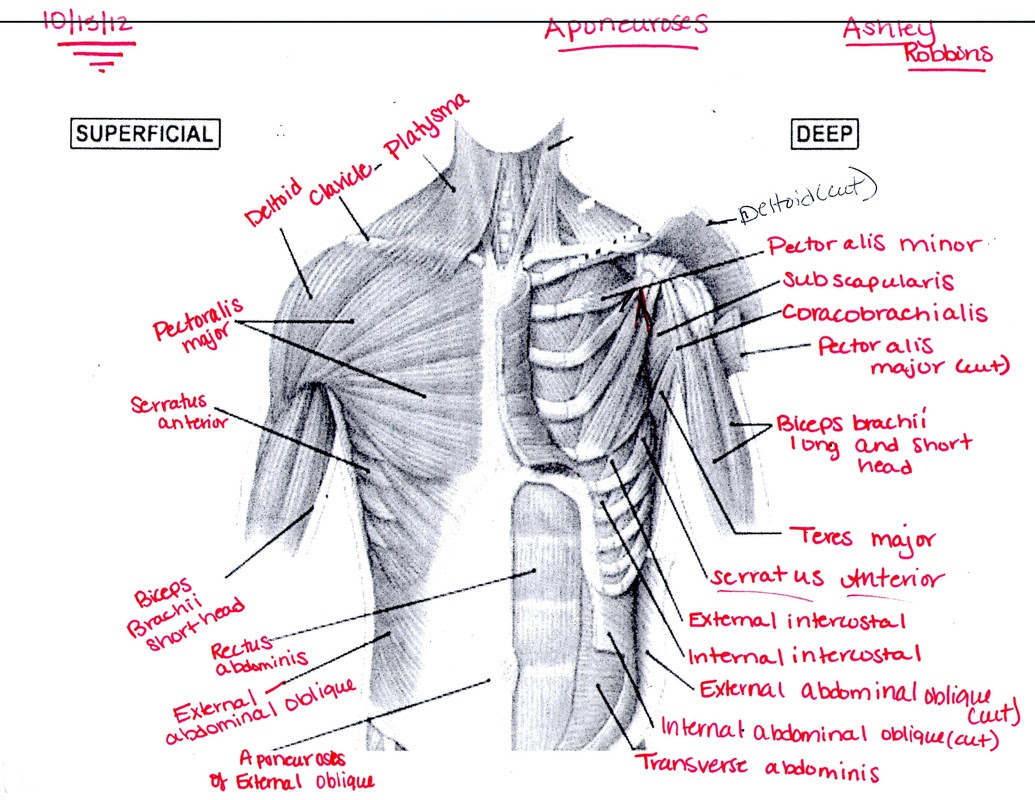 10/15/12
Aponeuroses
Ashley
Robbins
SUPERFICIAL
DEEP
Platysma
Clavicle
Deltoid
Pectoralis
major
Serratus
anterior
Biceps
Brachii
short head
Rectus
abdominis
External
abdominal oblique
Aponeuroses
of External Oblique
Deltoid (cut)
Pectoralis minor
Subscapularis
Coracobrachialis
Pectoralis
major (cut)
Biceps brachii
long and short
head
Teres major
serratus Anterior
External intercostal
Internal intercostal
External abdominal oblique
(cut)
Internal abdominal oblique (cut)
Transverse abdominis